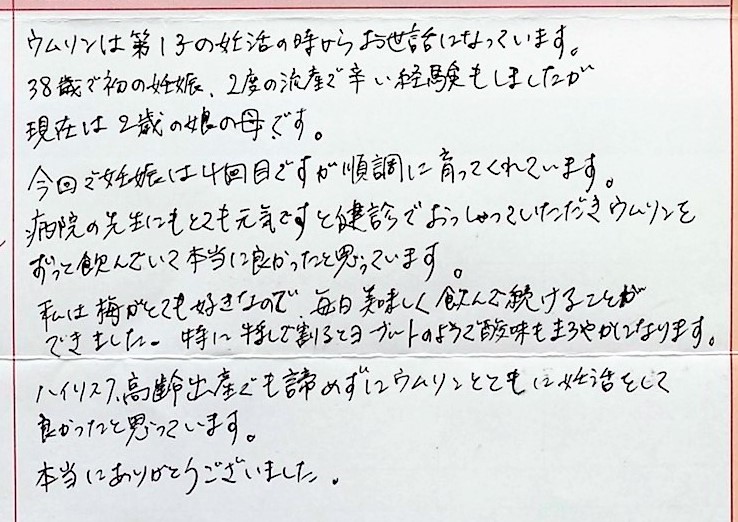 ウムリンは第1子の妊活の時からお世話になっています。
38歳で初の妊娠、2度の流産で辛い経験もしましたが
現在は2歳の娘の母です。
今回で妊娠は4回目ですが順調に育ってくれています。
病院の先生にもとても元気ですと健診でおっしゃっていただきウムリンを
ずっと飲んでいて本当に良かったと思っています。
私は梅がとても好きなので、毎日美味しく飲んで続けることが
できました。特に牛乳で割るとヨーグルトのようで酸味もまろやかになります。
ハイリスク、高齢出産でも諦めずにウムリンとともに妊活をして
良かったと思っています。
本当にありがとうございました。